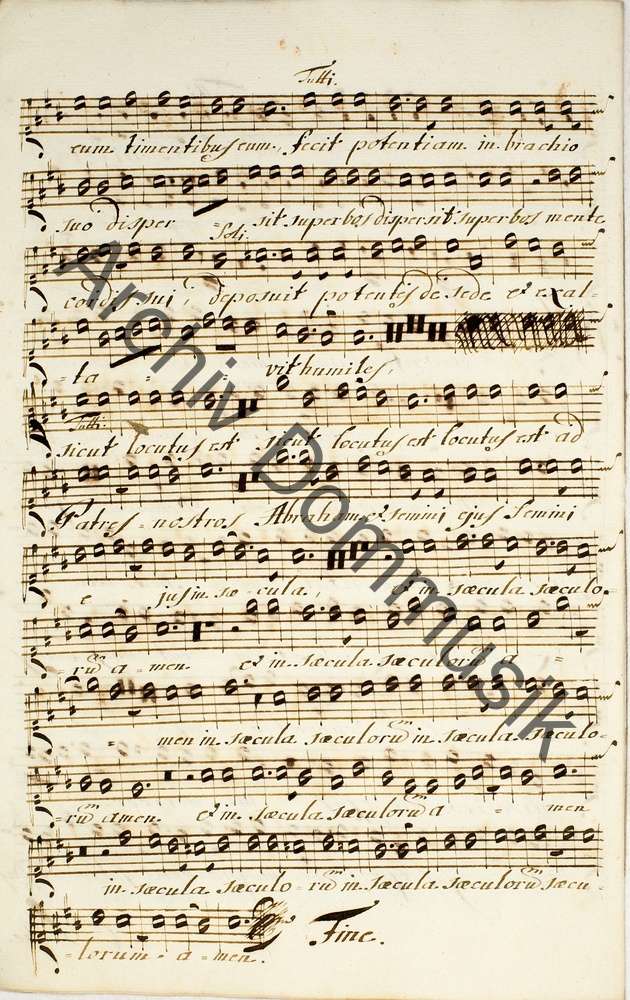 Tutti.
eum timentibus eum, fecit potentiam in brachio
suo disper = sit superbos dispersit superbos mente
Soli.
cordis sui, deposuit potentes de sede et exal=
= ta = = vit humiles,
Tutti.
sicut locutus est sicut locutus est locutus est ad
Patres = nostros Abraham et semini ejus semini
e jus in sæ = cula, et in sæcula sæculo=
= rũ a = men. et in sæcula sæculorũ a =
= men in sæcula sæculorũ in sæcula sæculo=
= rũ amen. et in sæcula sæculorũ a = men
in sæcula sæculo = rũ in sæcula sæculorũ sæcu=
= lorum = a = men.
Fine.
Archiv Dommusik